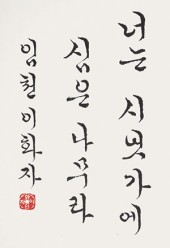 너는 시냇가에
심은 나무라
임천 이화자